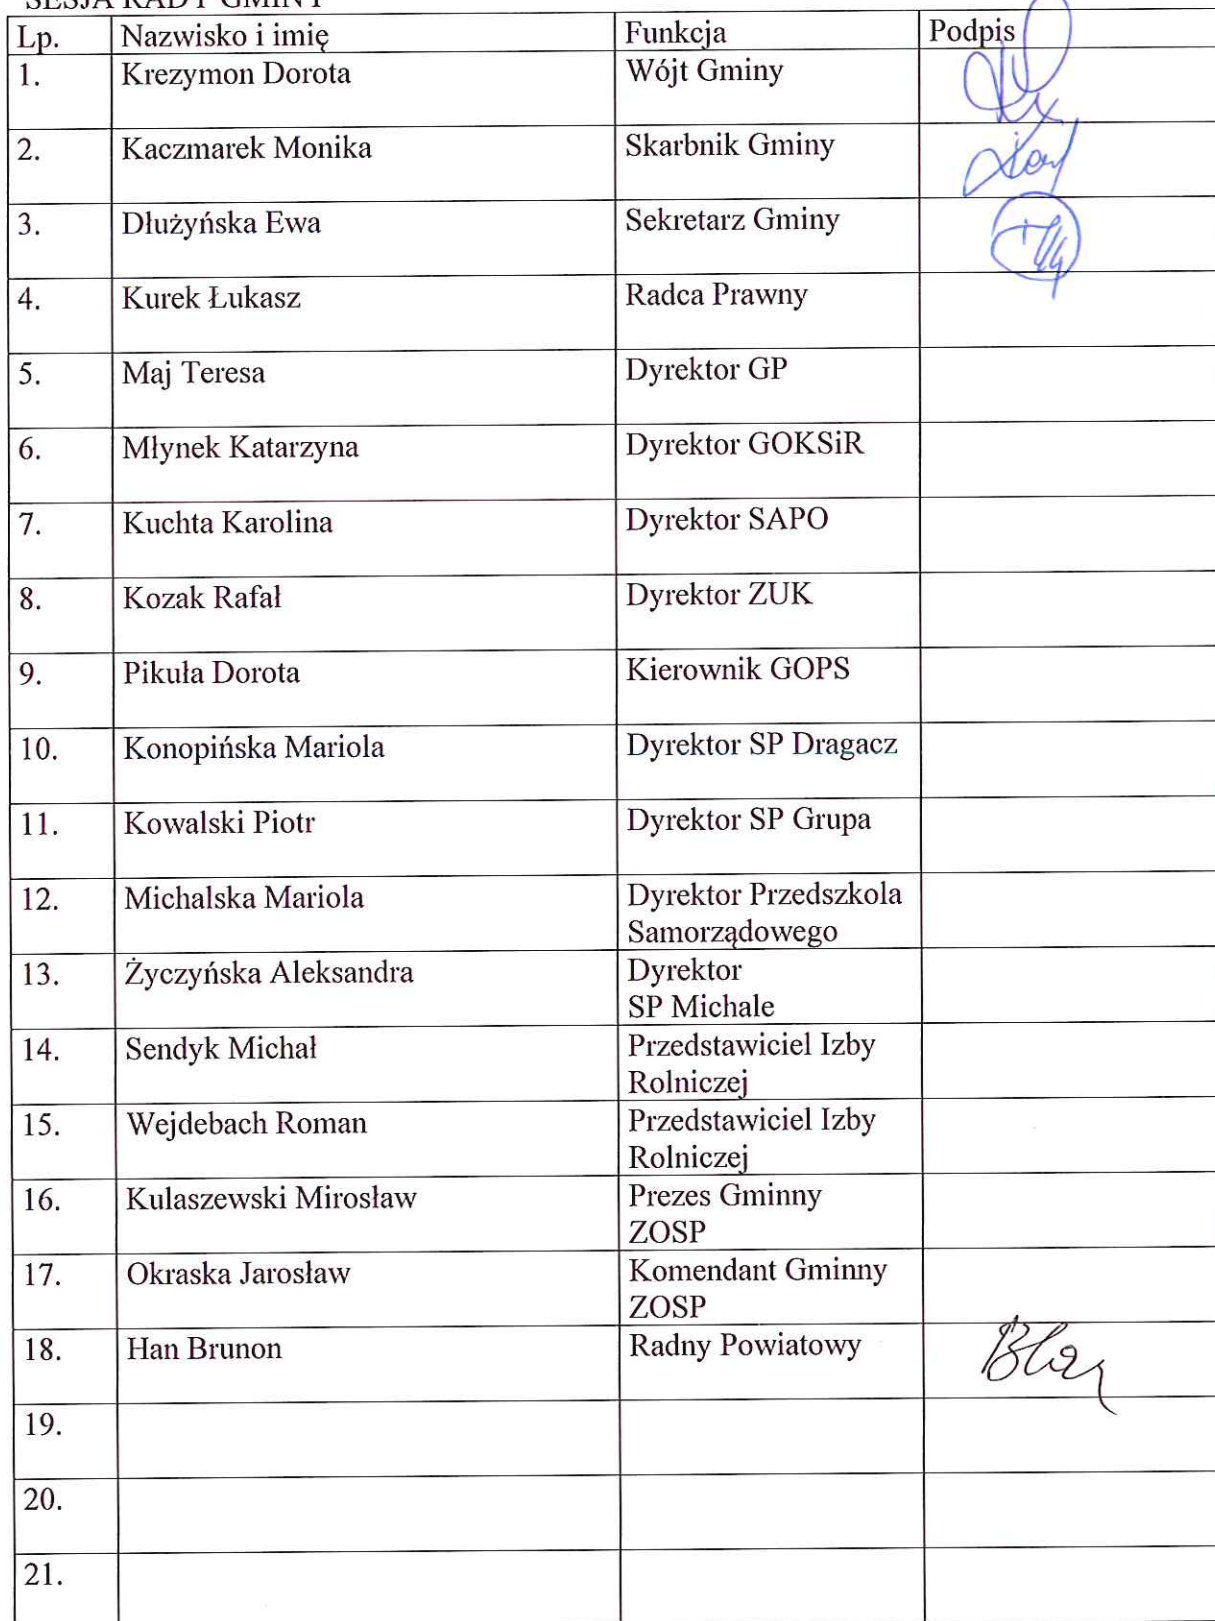 SESJA RADY GMINY
Lp. Nazwisko i imię Funkcja Podpis
1. Krezymon Dorota Wójt Gminy
2. Kaczmarek Monika Skarbnik Gminy
3. Dłużyńska Ewa Sekretarz Gminy
4. Kurek Łukasz Radca Prawny
5. Maj Teresa Dyrektor GP
6. Młynek Katarzyna Dyrektor GOKSiR
7. Kuchta Karolina Dyrektor SAPO
8. Kozak Rafał Dyrektor ZUK
9. Pikuła Dorota Kierownik GOPS
10. Konopińska Mariola Dyrektor SP Dragacz
11. Kowalski Piotr Dyrektor SP Grupa
12. Michalska Mariola Dyrektor Przedszkola
Samorządowego
13. Życzyńska Aleksandra Dyrektor
SP Michale
14. Sendyk Michał Przedstawiciel Izby
Rolniczej
15. Wejdebach Roman Przedstawiciel Izby
Rolniczej
16. Kulaszewski Mirosław Prezes Gminny
ZOSP
17. Okraska Jarosław Komendant Gminny
ZOSP
18. Han Brunon Radny Powiatowy
19.
20.
21.